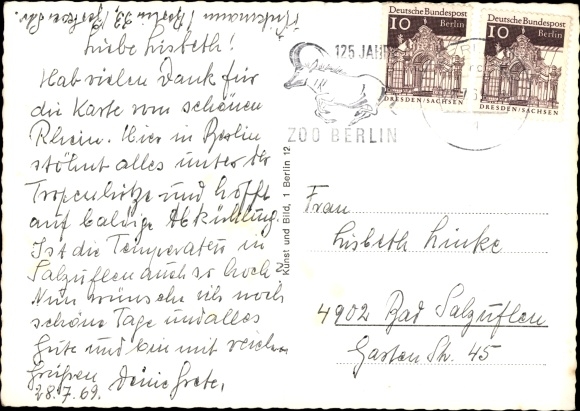 Berlin 33,
Liebe Lisbeth!
Hab vielen Dank für
die Karte vom schönen
Rhein. Hier in Berlin
stöhnt alles unter der
Tropenhitze und hofft
auf baldige Abkühlung.
Ist die Temperatur in
Salzuflen auch so hoch?
Nun wünsche ich noch
schöne Tage und alles
Gute und bin mit
Grüßen Deine Grete.
28.7.69.
Deutsche Bundespost
10 Berlin
DRESDEN/SACHSEN
Deutsche Bundespost
10 Berlin
DRESDEN/SACHSEN
125 JAHRE
ZOO BERLIN
Kunst und Bild, 1 Berlin 12
Frau
Lisbeth Linke
4902 Bad Salzuflen
Garten Str. 45